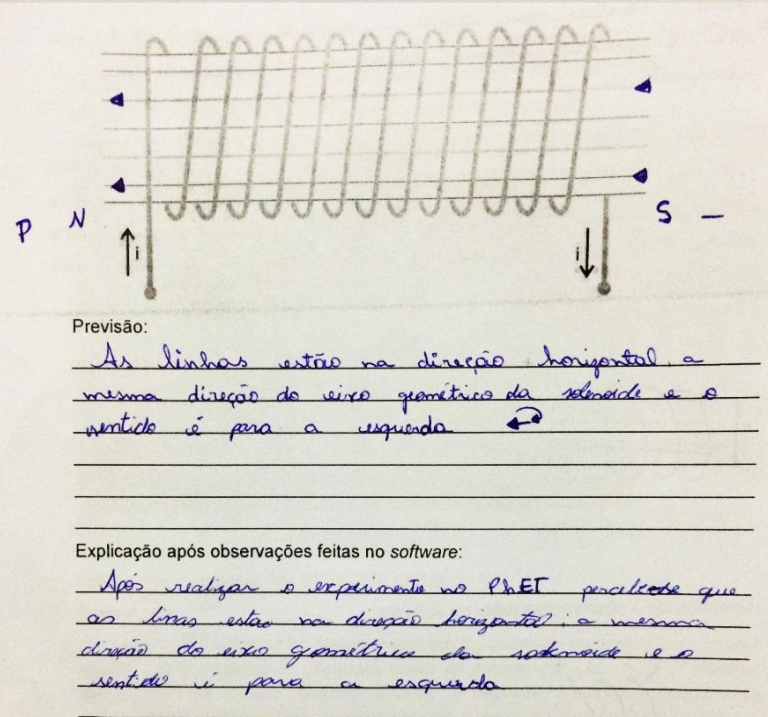 P N S –
i i
Previsão:
As linhas estão na direção horizontal, a
mesma direção do eixo geométrico da solenoide e o
sentido é para a esquerda
Explicação após observações feitas no software:
Após realizar o experimento no PhET percebe-se que
as linas estao na direção horizontal, a mesma
direção do eixo geométrico da solenoide e o
sentido é para a esquerda